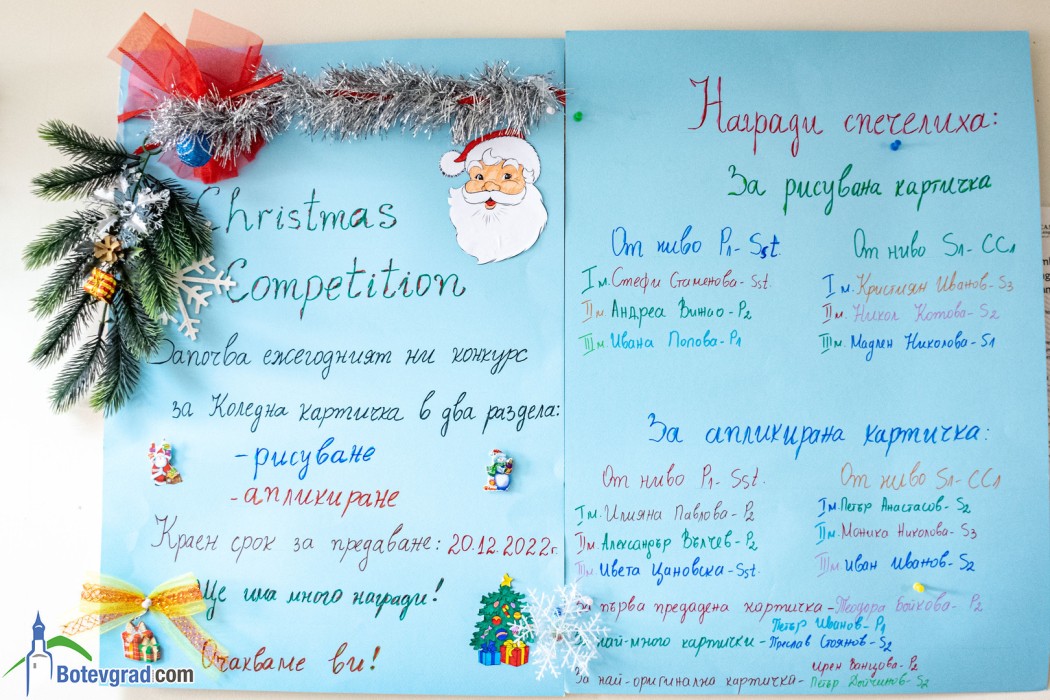 Christmas
Competition
Започва ежегодният ни конкурс
за Коледна картичка в два раздела:
-рисуване
-апликиране
Краен срок за предаване: 20.12.2022г.
Ще има много награди!
Очакваме ви!
Награди спечелиха:
За рисувана картичка
От ниво P1-S5t.
I м. Стефи Стаменова- S5t.
II м. Андреа Винчо-P2
III м. Ивана Попова-P1
От ниво S1-CC1
I м. Кристиян Иванов-S3
II м. Никол Котова-S2
III м. Мадлен Николова-S1
За апликирана картичка:
От ниво P1-S5t.
I м. Илияна Павлова-P2
II м. Александър Вълчев-P2
III м. Цвета Цановска-S5t.
От ниво S1-CC1
I м. Петър Анастасов-S2
II м. Моника Николова-S3
III м. Иван Иванов-S2
За първа предадена картичка-Теодора Бойкова-P2
Петър Иванов-P1
най-много картички - Стоянов-S2
Ирен -P2
За най-оригинална картичка- Петър -S2
Botevgrad.com